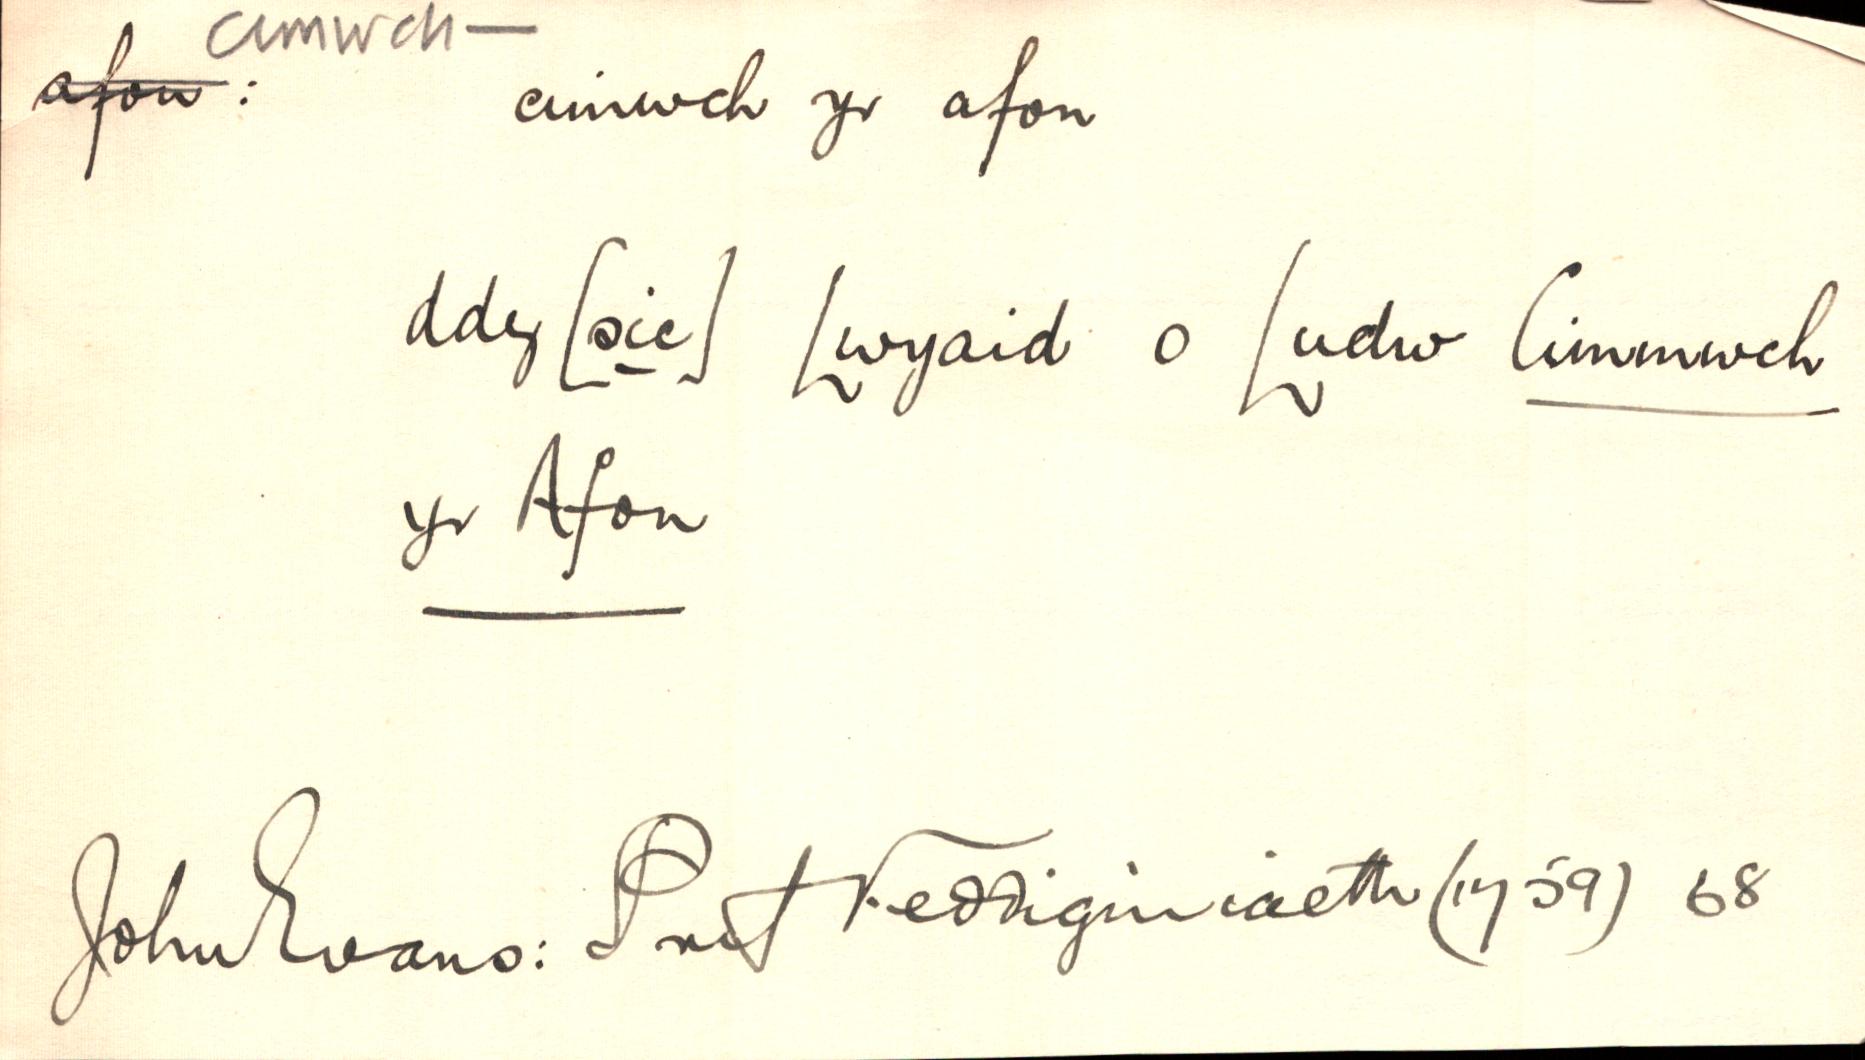 cimwch —
afon : cimwch yr afon
ddey [sic] Lwyaid o Ludw Cimmwch
yr Afon
John Evans: Prif Feddiginiaeth (1759) 68